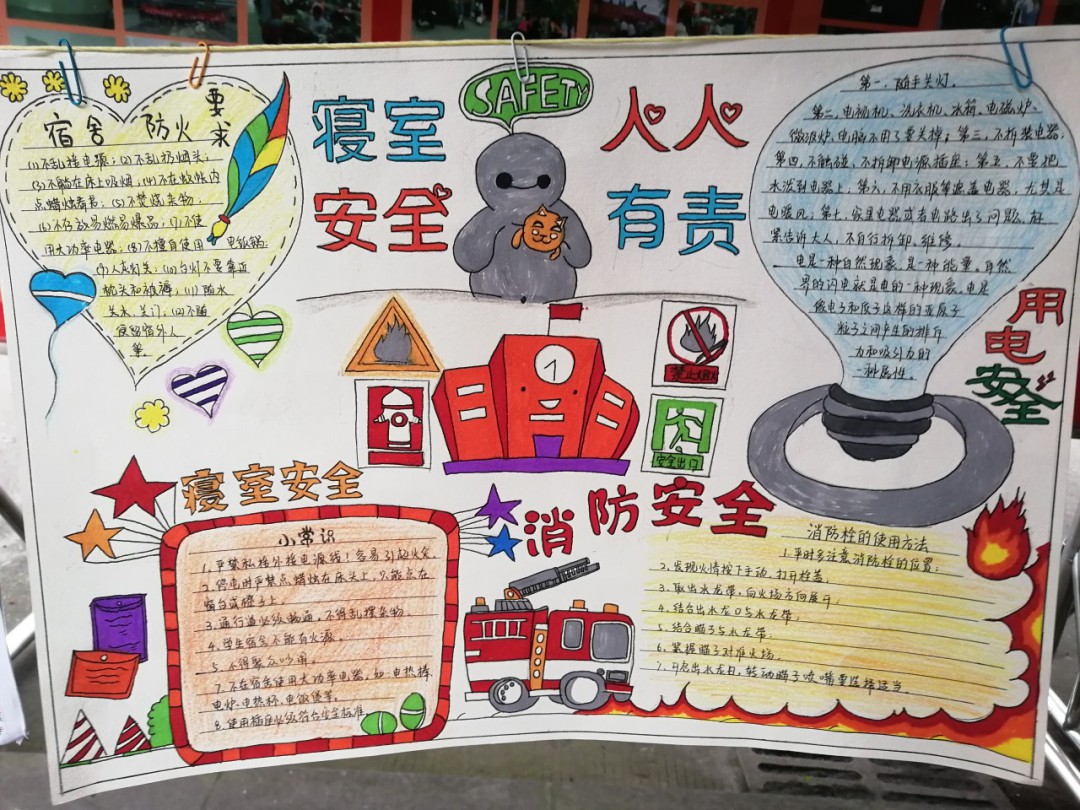 宿舍防火要求
(1)不乱接电源;(2)不乱扔烟头;
(3)不躺在床上吸烟;(4)不在蚊帐内
点蜡烛看书;(5)不焚烧杂物;
(6)不存放易燃易爆品;(7)不使
用大功率电器;(8)不擅自使用电饭锅
(9)人走灯关;(10)台灯不要靠近
枕头和被褥;(11)
火关,关门;(12)不随
便留宿外人
等.
寝室
安全
SAFETY
人人
有责
第一,随手关灯.
第二,电视机、洗衣机、冰箱、电磁炉、
微波炉、电脑不用了要关掉;第三,不拆装电器.
第四,不触碰,不拆卸电源插座;第五,不要把
水泼到电器上,第六,不用衣服等遮盖电器,尤其是
电暖风;第七,家里电器或者电路出了问题,赶
紧告诉大人,不自行拆卸、维修.
电是一种自然现象,是一种能量.自然
界的闪电就是电的一种现象.电是
像电子和质子这样的亚原子
粒子之间产生的排斥
力和吸引力的
一种属性。
用
电
安全
禁止烟火
安全出口
寝室安全
小常识
1.严禁私接外接电源线!容易引起火灾.
2.停电时严禁点蜡烛在床头上,只能点在
窗台或凳子上.
3.通行道必须畅通,不得乱摆杂物.
4.学生宿舍不能有火源。
5.不得聚众吵闹.
7.不在宿舍使用大功率电器,如:电热棒、
电炉、电热杯、电饭煲等。
8.使用插座必须符合安全标准.
消防安全
消防栓的使用方法
1.平时多注意消防栓的位置;
2.发现火情按下手动,打开栓盖.
3.取出水龙带,向火场方向展开.
4.结合出水龙口与水龙带;
5.结合瞄子与水龙带;
6.紧握瞄子对准火场.
7.开启出水龙口,转动瞄子喷嘴里选择适当.